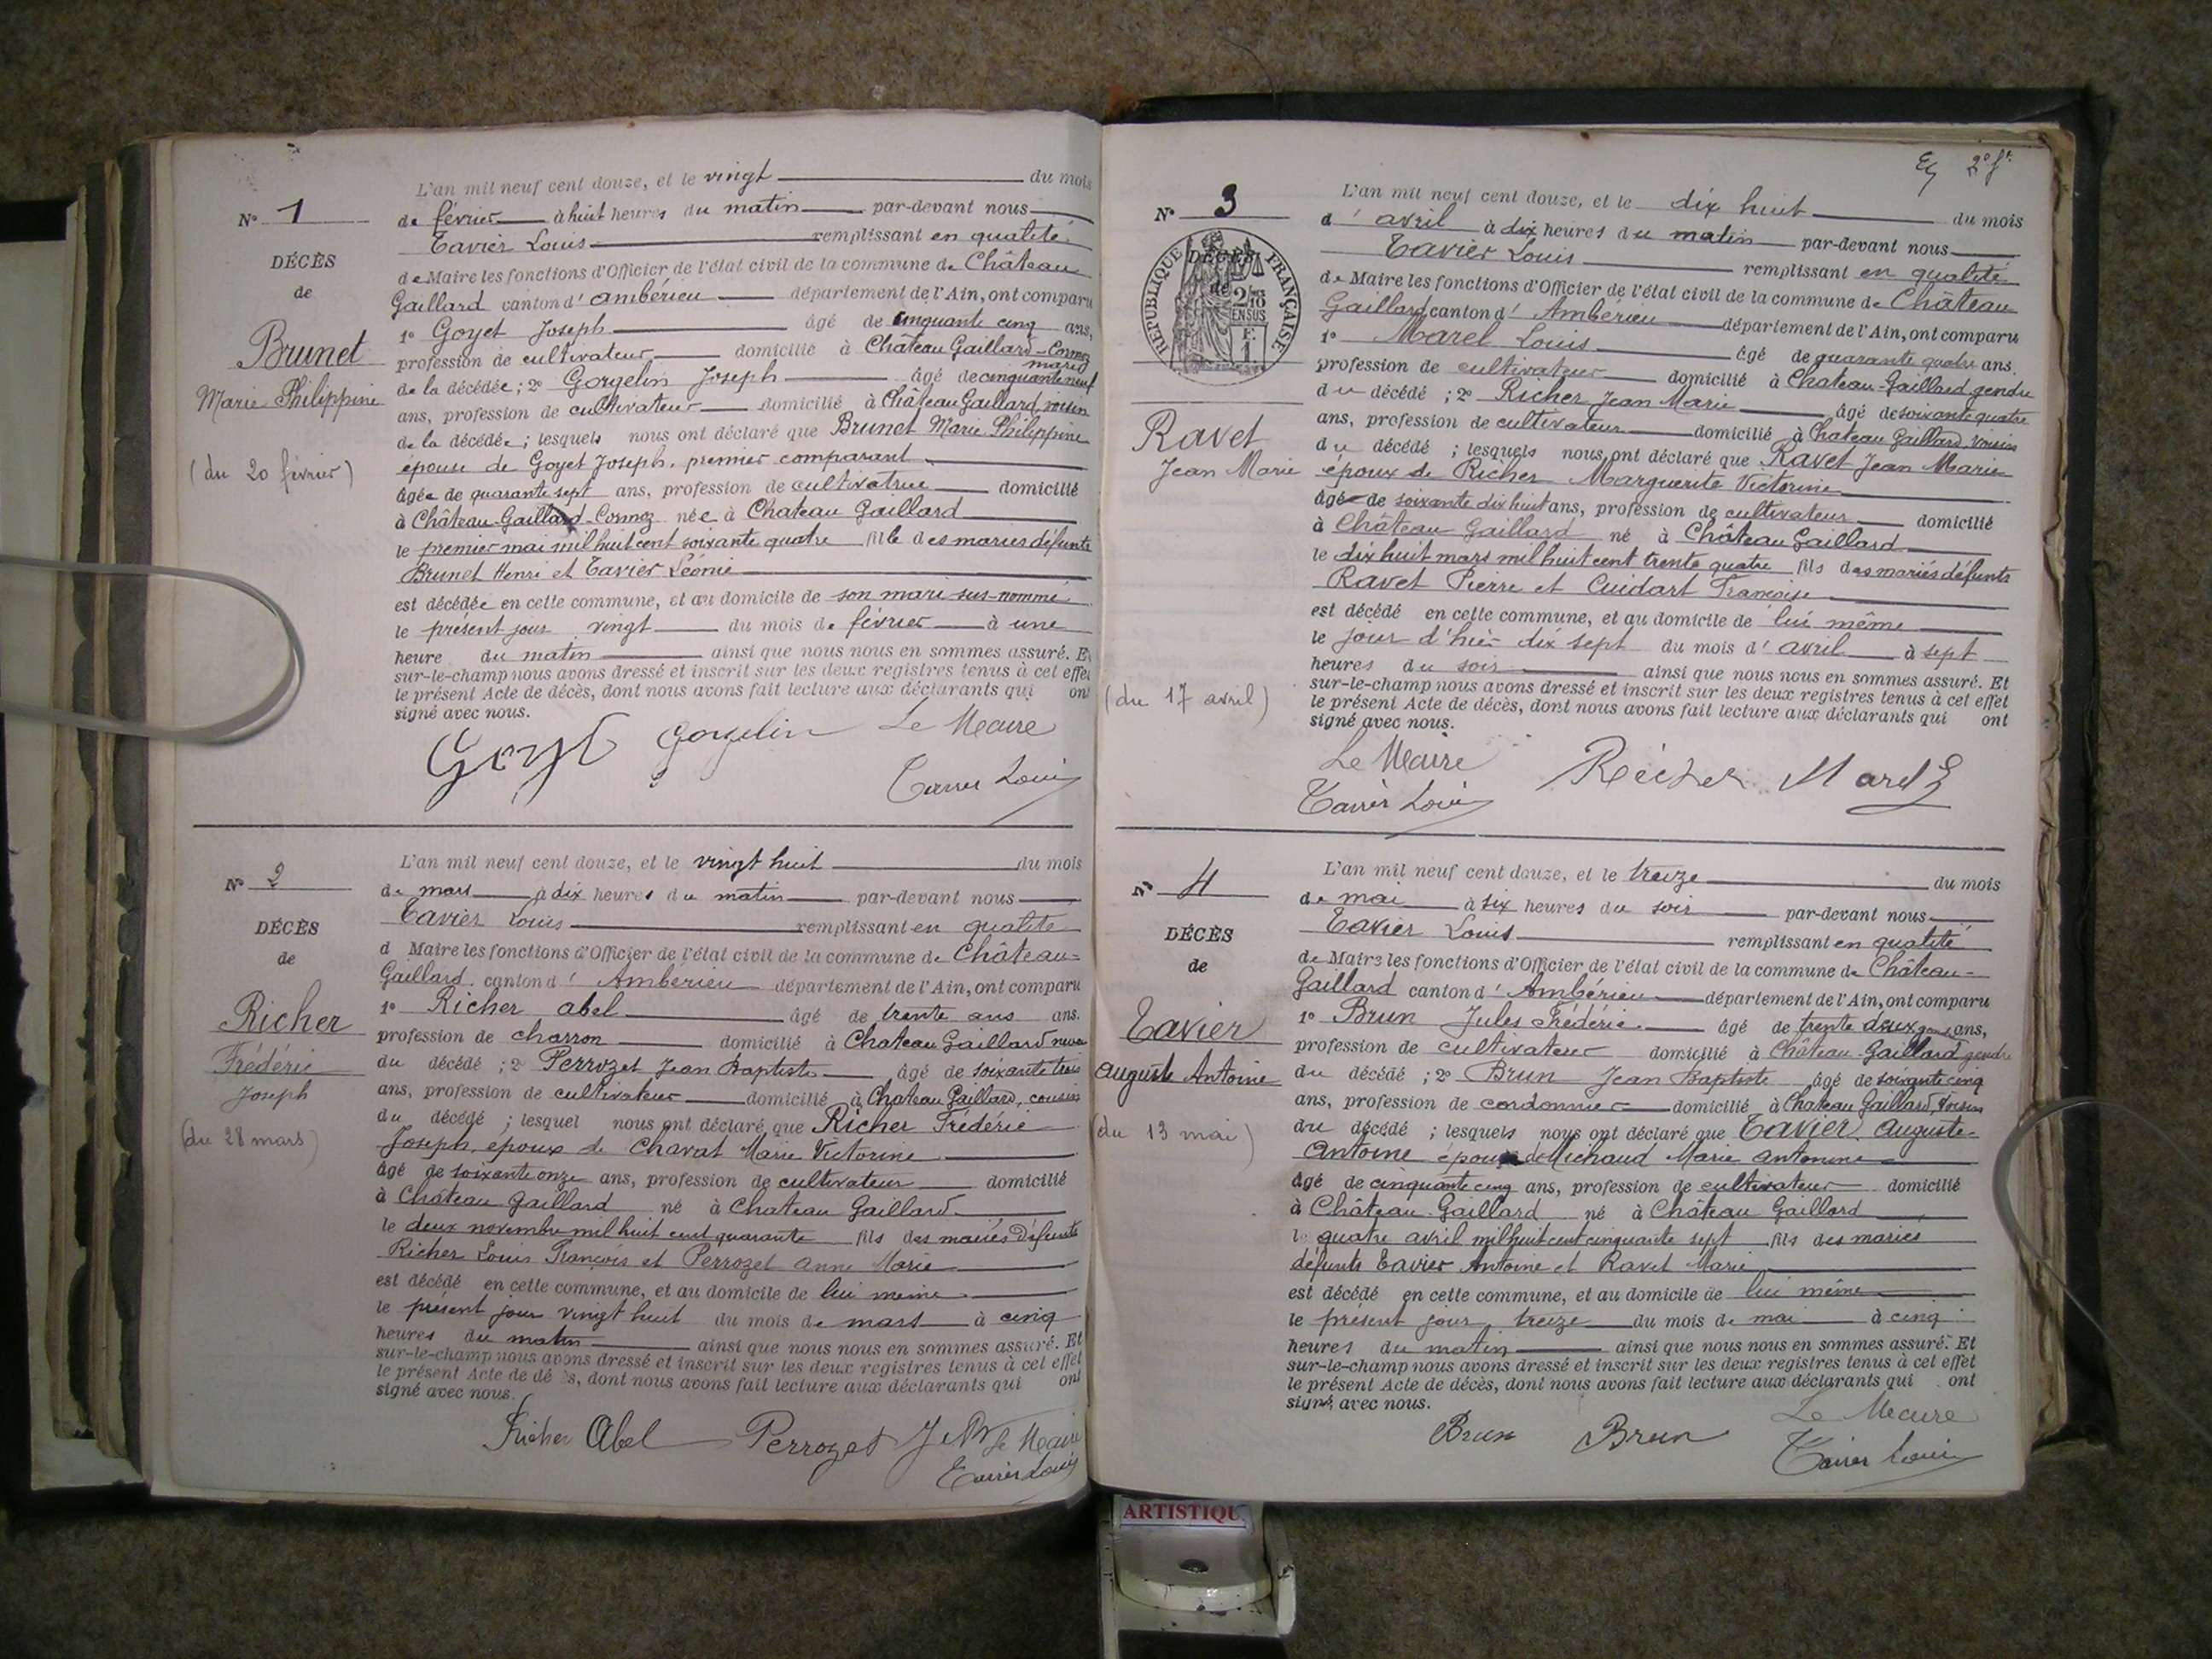 N° 1
DÉCÈS
de
Brunet
Marie Philippine
(du 20 février)
L'an mil neuf cent douze, et le vingt du mois
de février à huit heures du matin par-devant nous
Tavier Louis remplissant en qualité
de Maire les fonctions d'Officier de l'état civil de la commune de Château
Gaillard canton d' Ambérieu département de l'Ain, ont comparu
1° Goyet Joseph âgé de cinquante cinq ans,
profession de cultivateur domicilié à Château Gaillard-Cormoz mari
de la décédée ; 2° Gorgelin Joseph âgé de cinquante neuf
ans, profession de cultivateur domicilié à Château Gaillard, voisin
de la décédée ; lesquels nous ont déclaré que Brunet Marie Philippine
épouse de Goyet Joseph, premier comparant
âgée de quarante sept ans, profession de cultivatrice domicilié
à Château-Gaillard-Cormoz née à Chateau Gaillard
le premier mai mil huit cent soixante quatre fille des mariés défunts
Brunet Henri et Tavier Léonie
est décédée en cette commune, et au domicile de son mari sus-nommé
le présent jour vingt du mois de février à une
heure du matin ainsi que nous nous en sommes assuré. Et
sur-le-champ nous avons dressé et inscrit sur les deux registres tenus à cet effet
le présent Acte de décès, dont nous avons fait lecture aux déclarants qui ont
signé avec nous.
Goyet Gorgelin Le Maire
Tavier Louis
N° 2
DÉCÈS
de
Richer
Frédéric
Joseph
(du 28 mars)
L'an mil neuf cent douze, et le vingt huit du mois
de mars à dix heures du matin par-devant nous
Tavier Louis remplissant en qualité
d Maire les fonctions d'Officier de l'état civil de la commune de Château-
Gaillard canton d' Ambérieu département de l'Ain, ont comparu
1° Richer Abel âgé de trente ans ans.
profession de charron domicilié à Chateau Gaillard neveu
du décédé ; 2° Perrozet Jean Baptiste âgé de soixante trois
ans, profession de cultivateur domicilié à Chateau Gaillard, cousin
du décédé ; lesquel nous ont déclaré que Richer Frédéric
Joseph, époux de Chavat Marie Victorine
âgé de soixante onze ans, profession de cultivateur domicilié
à Château Gaillard né à Chateau Gaillard
le deux novembre mil huit cent quarante fils des mariés défunts
Richer Louis François et Perrozet Anne Marie
est décédé en cette commune, et au domicile de lui même
le présent jour vingt huit du mois de mars à cinq
heures du matin ainsi que nous nous en sommes assuré. Et
sur-le-champ nous avons dressé et inscrit sur les deux registres tenus à cet effet
le présent Acte de dé s, dont nous avons fait lecture aux déclarants qui ont
signé avec nous.
Richer Abel Perrozet J B Le Maire
Tavier Louis
2° ft
N° 3
RÉPUBLIQUE FRANÇAISE
2/10 EN SUS
F. 1
DÉCÈS
de
Ravet
Jean Marie
(du 17 avril)
L'an mil neuf cent douze, et le dix huit du mois
d' avril à dix heures du matin par-devant nous
Tavier Louis remplissant en qualité
de Maire les fonctions d'Officier de l'état civil de la commune de Château
Gaillard, canton d' Ambérieu département de l'Ain, ont comparu
1° Marel Louis âgé de quarante quatre ans.
profession de cultivateur domicilié à Chateau-Gaillard gendre
du décédé ; 2° Richer Jean Marie âgé de soixante quatre
ans, profession de cultivateur domicilié à Chateau Gaillard, voisin
du décédé ; lesquels nous ont déclaré que Ravet Jean Marie
époux de Richer Marguerite Victorine
âgé de soixante dix huit ans, profession de cultivateur domicilié
à Château Gaillard né à Château Gaillard
le dix huit mars mil huit cent trente quatre fils des mariés défunts
Ravet Pierre et Cuidart Françoise
est décédé en cette commune, et au domicile de lui même
le jour d'hier dix sept du mois d' avril à sept
heures du soir ainsi que nous nous en sommes assuré. Et
sur-le-champ nous avons dressé et inscrit sur les deux registres tenus à cet effet
le présent Acte de décès, dont nous avons fait lecture aux déclarants qui ont
signé avec nous.
Le Maire
Tavier Louis Richer Marel
N° 4
DÉCÈS
de
Tavier
Auguste Antoine
(du 13 mai)
L'an mil neuf cent douze, et le treize du mois
de mai à six heures du soir par-devant nous
Tavier Louis remplissant en qualité
de Maire les fonctions d'Officier de l'état civil de la commune de Château-
Gaillard canton d' Ambérieu département de l'Ain, ont comparu
1° Brun Jules Frédéric âgé de trente deux ans,
profession de cultivateur domicilié à Château-Gaillard gendre
du décédé ; 2° Brun Jean Baptiste âgé de soixante cinq
ans, profession de cordonnier domicilié à Chateau Gaillard, voisin
du décédé ; lesquels nous ont déclaré que Tavier Auguste
Antoine époux de Michaud Marie Antonine
âgé de cinquante cinq ans, profession de cultivateur domicilié
à Château-Gaillard né à Château Gaillard
le quatre avril mil huit cent cinquante sept fils des mariés
défunts Tavier Antoine et Ravet Marie
est décédé en cette commune, et au domicile de lui même
le présent jour treize du mois de mai à cinq
heures du matin ainsi que nous nous en sommes assuré. Et
sur-le-champ nous avons dressé et inscrit sur les deux registres tenus à cet effet
le présent Acte de décès, dont nous avons fait lecture aux déclarants qui ont
signé avec nous.
Brun Brun Le Maire
Tavier Louis
ARTISTIQU